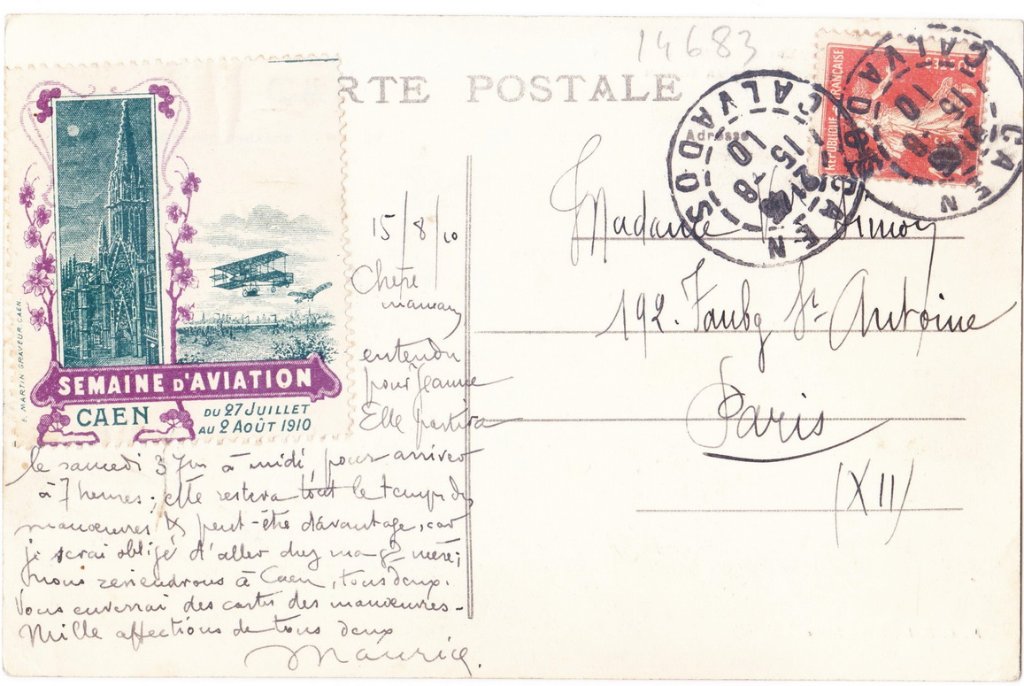 14683
CARTE POSTALE
Adresse
CAEN
CALVADOS
15 -8
10
CAEN
CALVADOS
15 -8
10
REPUBLIQUE FRANÇAISE
E. MARTIN GRAVEUR CAEN.
SEMAINE D'AVIATION
CAEN
DU 27 JUILLET
AU 2 AOÛT 1910
15/8/10
Chère
maman
entendu
pour Jeanne
Elle partira
le samedi 3 7bre à midi, pour arriver
à 7 heures; elle restera tout le temps des
manœuvres & peut-être davantage, car
je serai obligé d'aller chez ma gd mère;
nous reviendrons à Caen, tous deux.
Vous enverrai des cartes des manœuvres-
Mille affections de tous deux
Maurice.
Madame Simon
192. Faubg St Antoine
Paris
(XII)